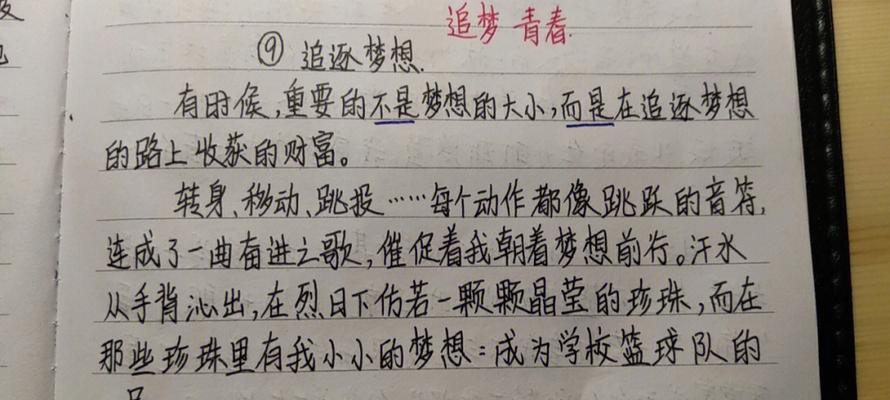 追梦 青春
⑨ 追逐梦想.
有时候,重要的不是梦想的大小,而是在追逐梦想
的路上收获的财富。
转身、移动、跳投……每个动作都像跳跃的音符,
连成了一曲奋进之歌,催促着我朝着梦想前行。汗水
从手背沁出,在烈日下仿若一颗颗晶莹的珍珠,而在
那些珍珠里有我小小的梦想:成为学校篮球队的